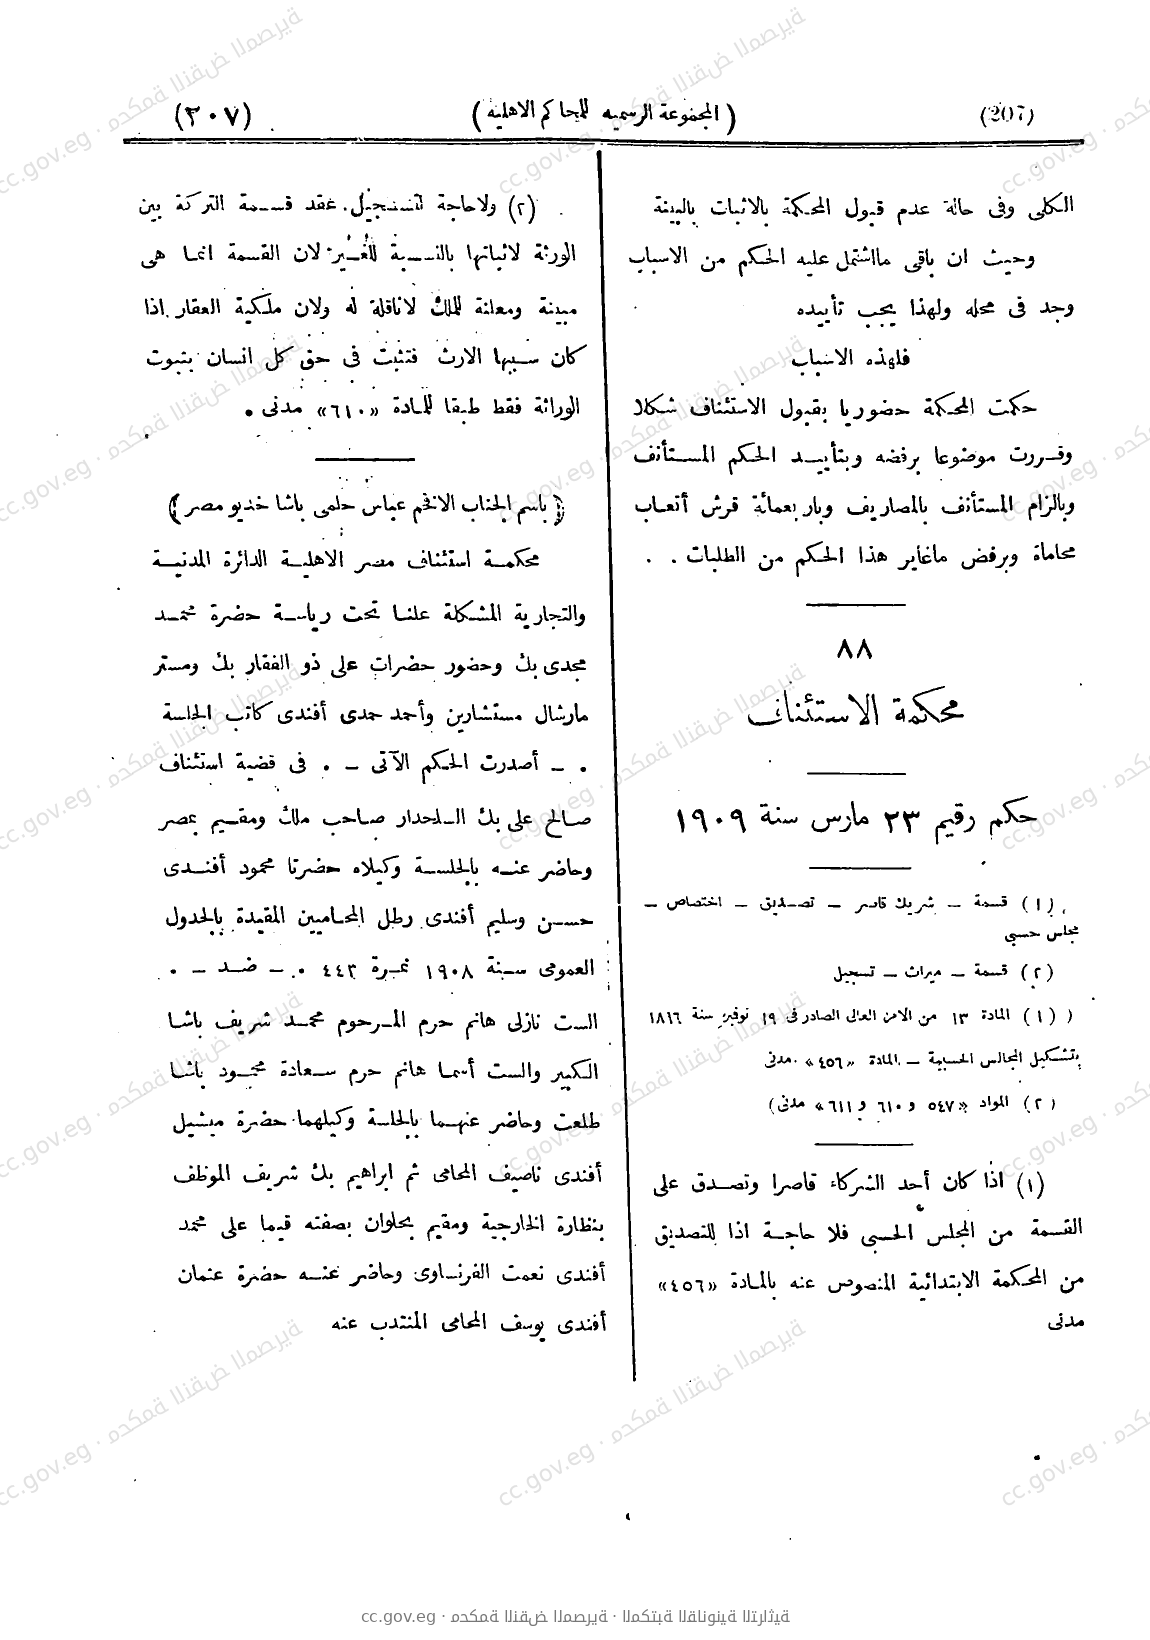 (207)
(المجموعة الرسميه للمحاكم الاهلية)
(٢٠٧)
الكلى وفى حالة عدم قبول المحكمة بالاثبات بالبينة
وحيث ان باقى مااشتمل عليه الحكم من الاسباب
وجد فى محله ولهذا يجب تأييده
فلهذه الاسباب
حكمت المحكمة حضوريا بقبول الاستئناف شكلا
وقررت موضوعا برفضه وبتأييد الحكم المستأنف
وبالزام المستأنف بالمصاريف وباربعمائة قرش أتعاب
محاماة وبرفض ماغاير هذا الحكم من الطلبات .
٨٨
محكمة الاستئناف
حكم رقيم ٢٣ مارس سنة ١٩٠٩
(١) قسمة – شريك قاصر – تصديق – اختصاص –
مجلس حسبى
(٢) قسمة – ميراث – تسجيل
(١) المادة ١٣ من الامر العالى الصادر فى ١٩ نوفمبر سنة ١٨٩٦
بتشكيل المجالس الحسبية – المادة «٤٥٦» مدنى
(٢) المواد «٥٤٧ و ٦١٠ و ٦١١» مدنى)
(١) اذا كان أحد الشركاء قاصرا وتصدق على
القسمة من المجلس الحسبى فلا حاجة اذا للتصديق
من المحكمة الابتدائية المنصوص عنه بالمادة «٤٥٦»
مدنى
(٢) ولاحاجة لتسجيل عقد قسمة التركة بين
الورثة لاثباتها بالنسبة للغير لان القسمة انما هى
مبينة ومعلنة للملك لاناقلة له ولان ملكية العقار اذا
كان سببها الارث فتثبت فى حق كل انسان بثبوت
الوراثة فقط طبقا للمادة «٦١٠» مدنى .
(باسم الجناب الافخم عباس حلمى باشا خديو مصر)
محكمة استئناف مصر الاهلية الدائرة المدنية
والتجارية المشكلة علنا تحت رياسة حضرة محمد
مجدى بك وحضور حضرات على ذو الفقار بك ومستر
مارشال مستشارين وأحمد حمدى أفندى كاتب الجلسة
. – أصدرت الحكم الآتى – . فى قضية استئناف
صالح على بك السلحدار صاحب ملك ومقيم بمصر
وحاضر عنه بالجلسة وكيلاه حضرتا محمود أفندى
حسن وسليم أفندى رطل المحاميين المقيدة بالجدول
العمومى سنة ١٩٠٨ نمرة ٤٤٣ . – ضد – .
الست نازلى هانم حرم المرحوم محمد شريف باشا
الكبير والست أسما هانم حرم سعادة محمود باشا
طلعت وحاضر عنهما بالجلسة وكيلهما حضرة ميشيل
أفندى ناصيف المحامى ثم ابراهيم بك شريف الموظف
بنظارة الخارجية ومقيم بحلوان بصفته قيما على محمد
أفندى نعمت الفرنساوى وحاضر عنه حضرة عثمان
أفندى يوسف المحامى المنتدب عنه
cc.gov.eg · محكمة النقض المصرية · المكتبة القانونية التراثية